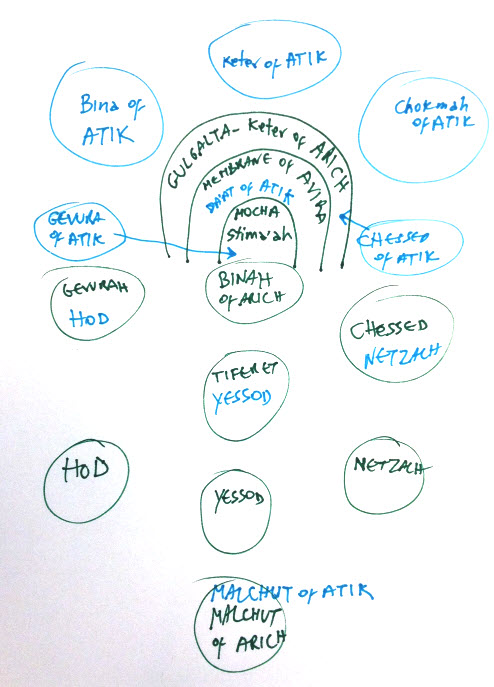 Keter of ATIK
Bina of
ATIK
Chokmah
of ATIK
GULGALTA - Keter of ARICH
MEMBRANE of AVIRA
DA'AT of ATIK
MOCHA
Stima'ah
GEVURA
of ATIK
CHESSED
of ATIK
BINAH
of ARICH
GEVURAH
HOD
CHESSED
NETZACH
TIFERET
YESSOD
HOD
NETZACH
YESSOD
MALCHUT of ATIK
MALCHUT
of ARICH